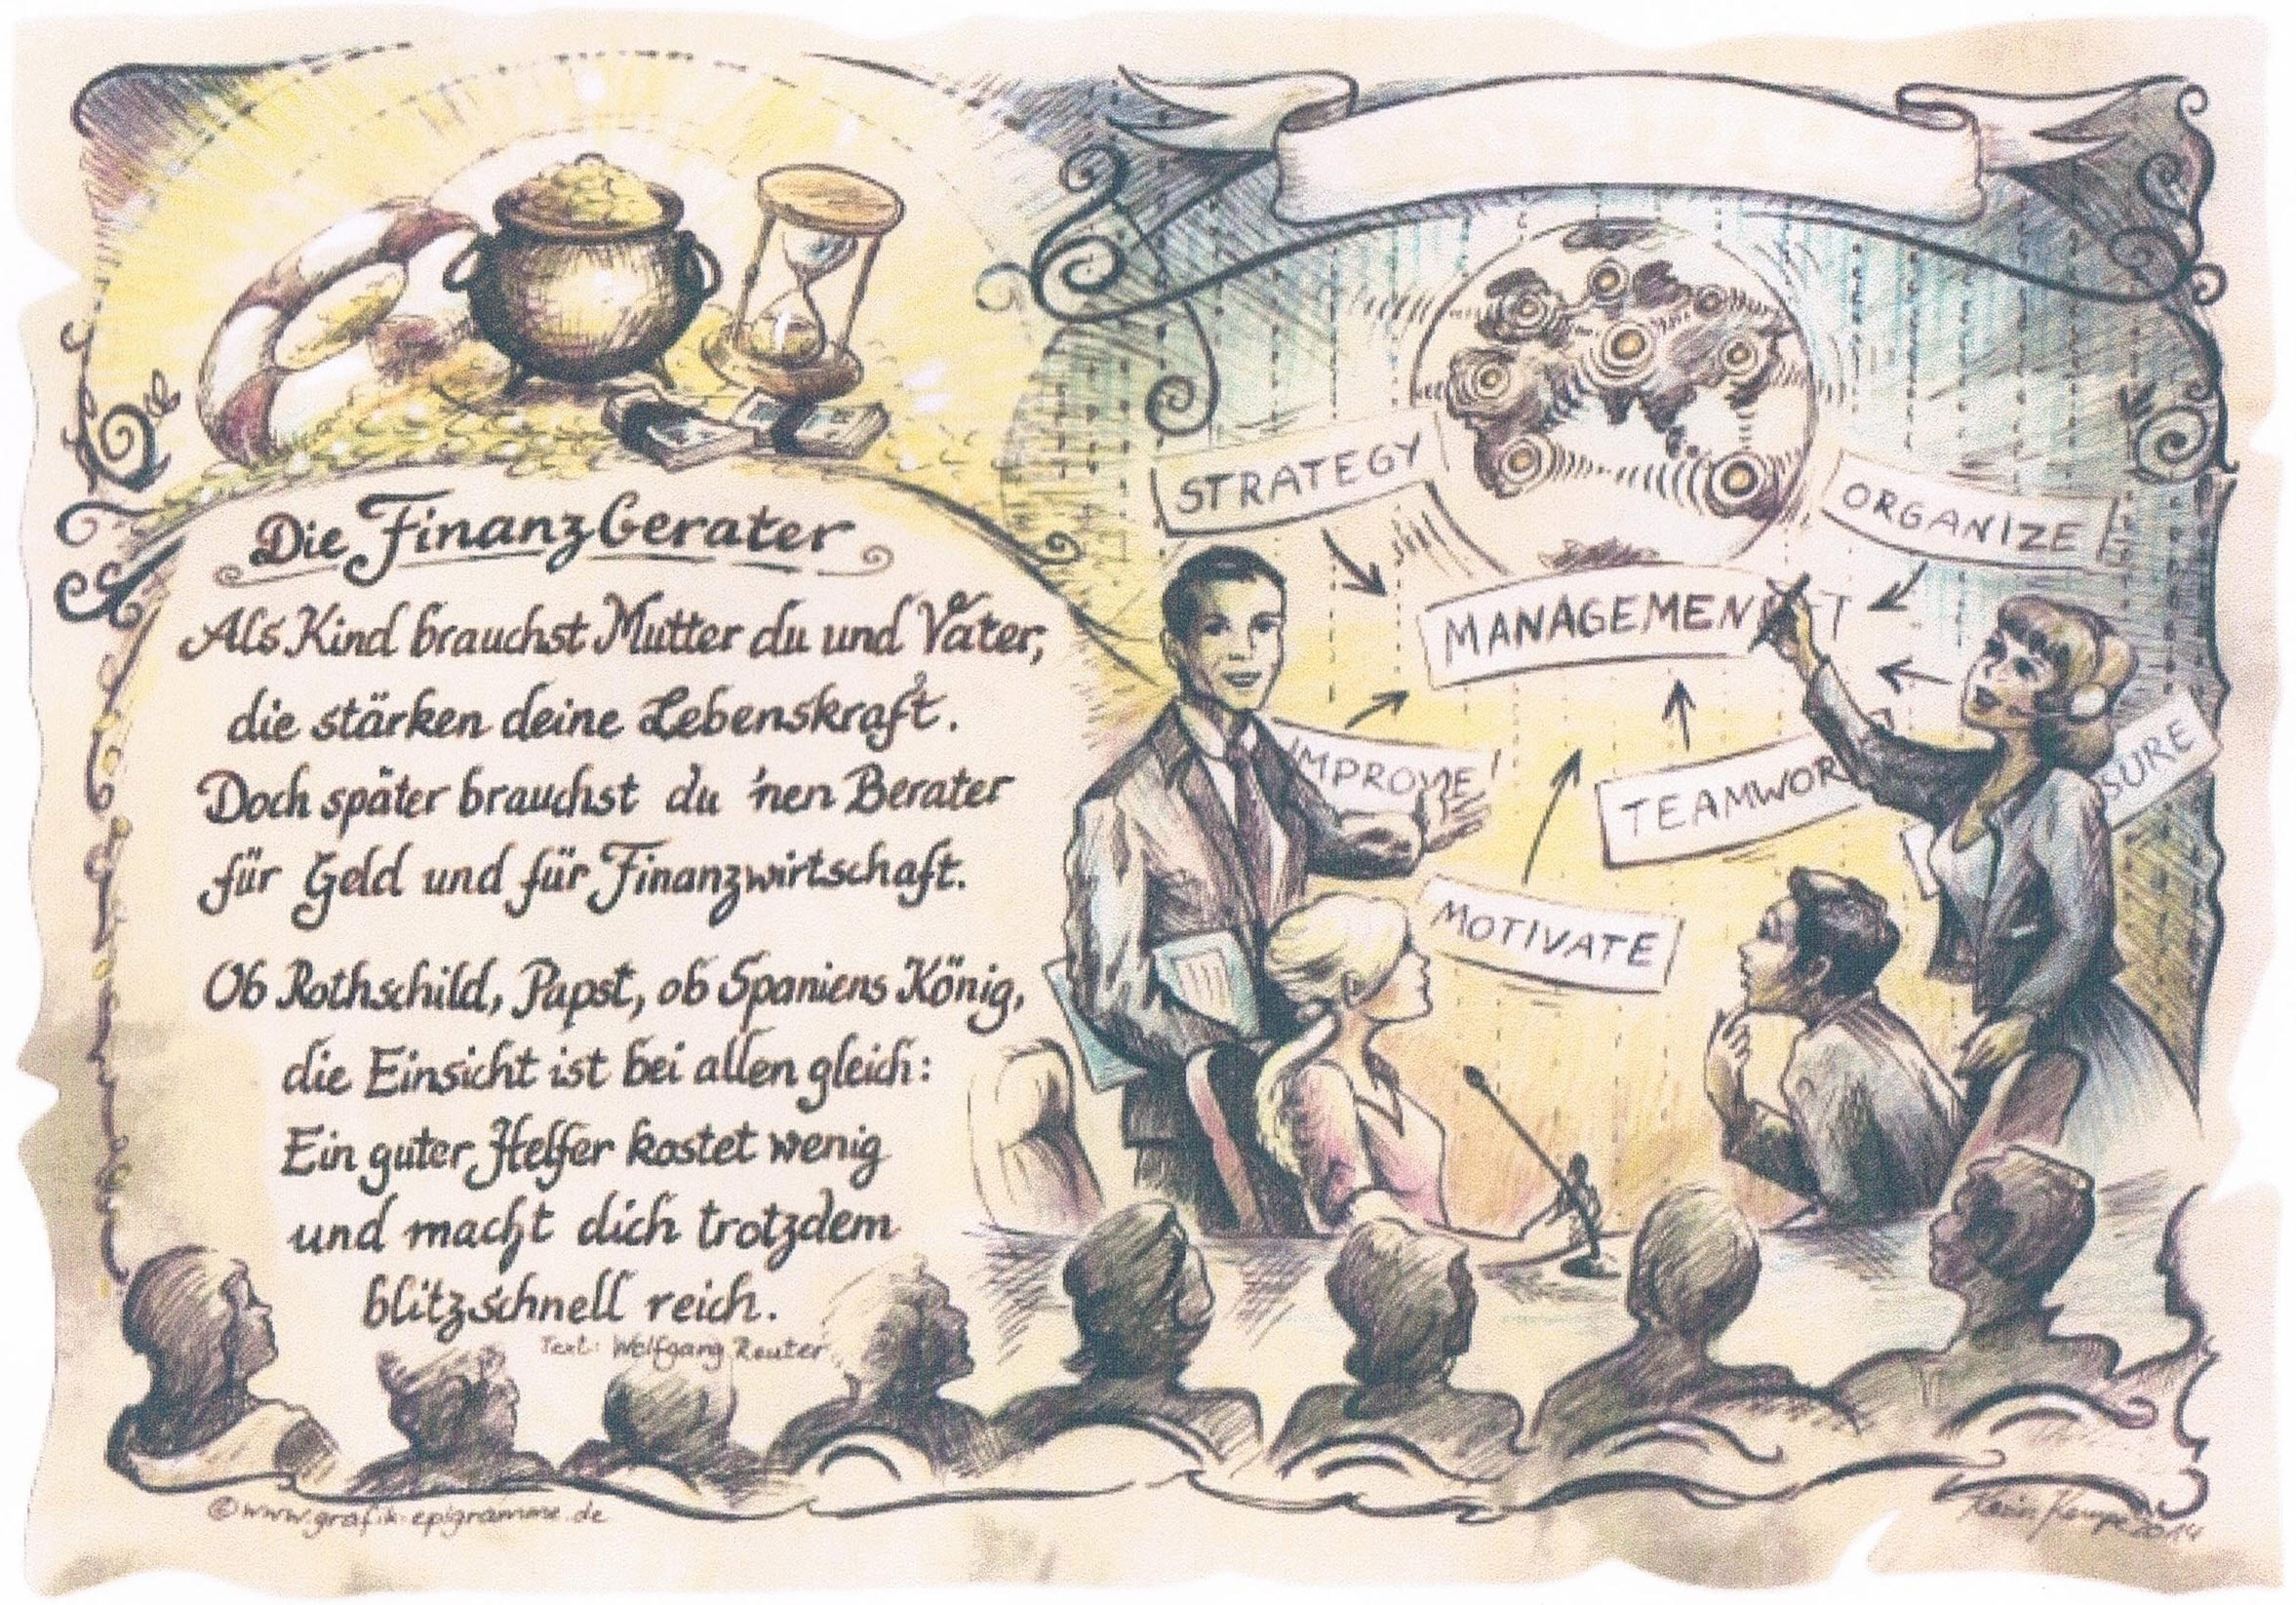 Die Finanzberater
Als Kind brauchst Mutter du und Vater,
die stärken deine Lebenskraft.
Doch später brauchst du 'nen Berater
für Geld und für Finanzwirtschaft.
Ob Rothschild, Papst, ob Spaniens König,
die Einsicht ist bei allen gleich:
Ein guter Helfer kostet wenig
und macht dich trotzdem
blitzschnell reich.
Text: Wolfgang Reuter
©www.grafik-epigramme.de
STRATEGY
ORGANIZE
MANAGEMENT
IMPROVE
SURE
TEAMWOR
MOTIVATE
2014